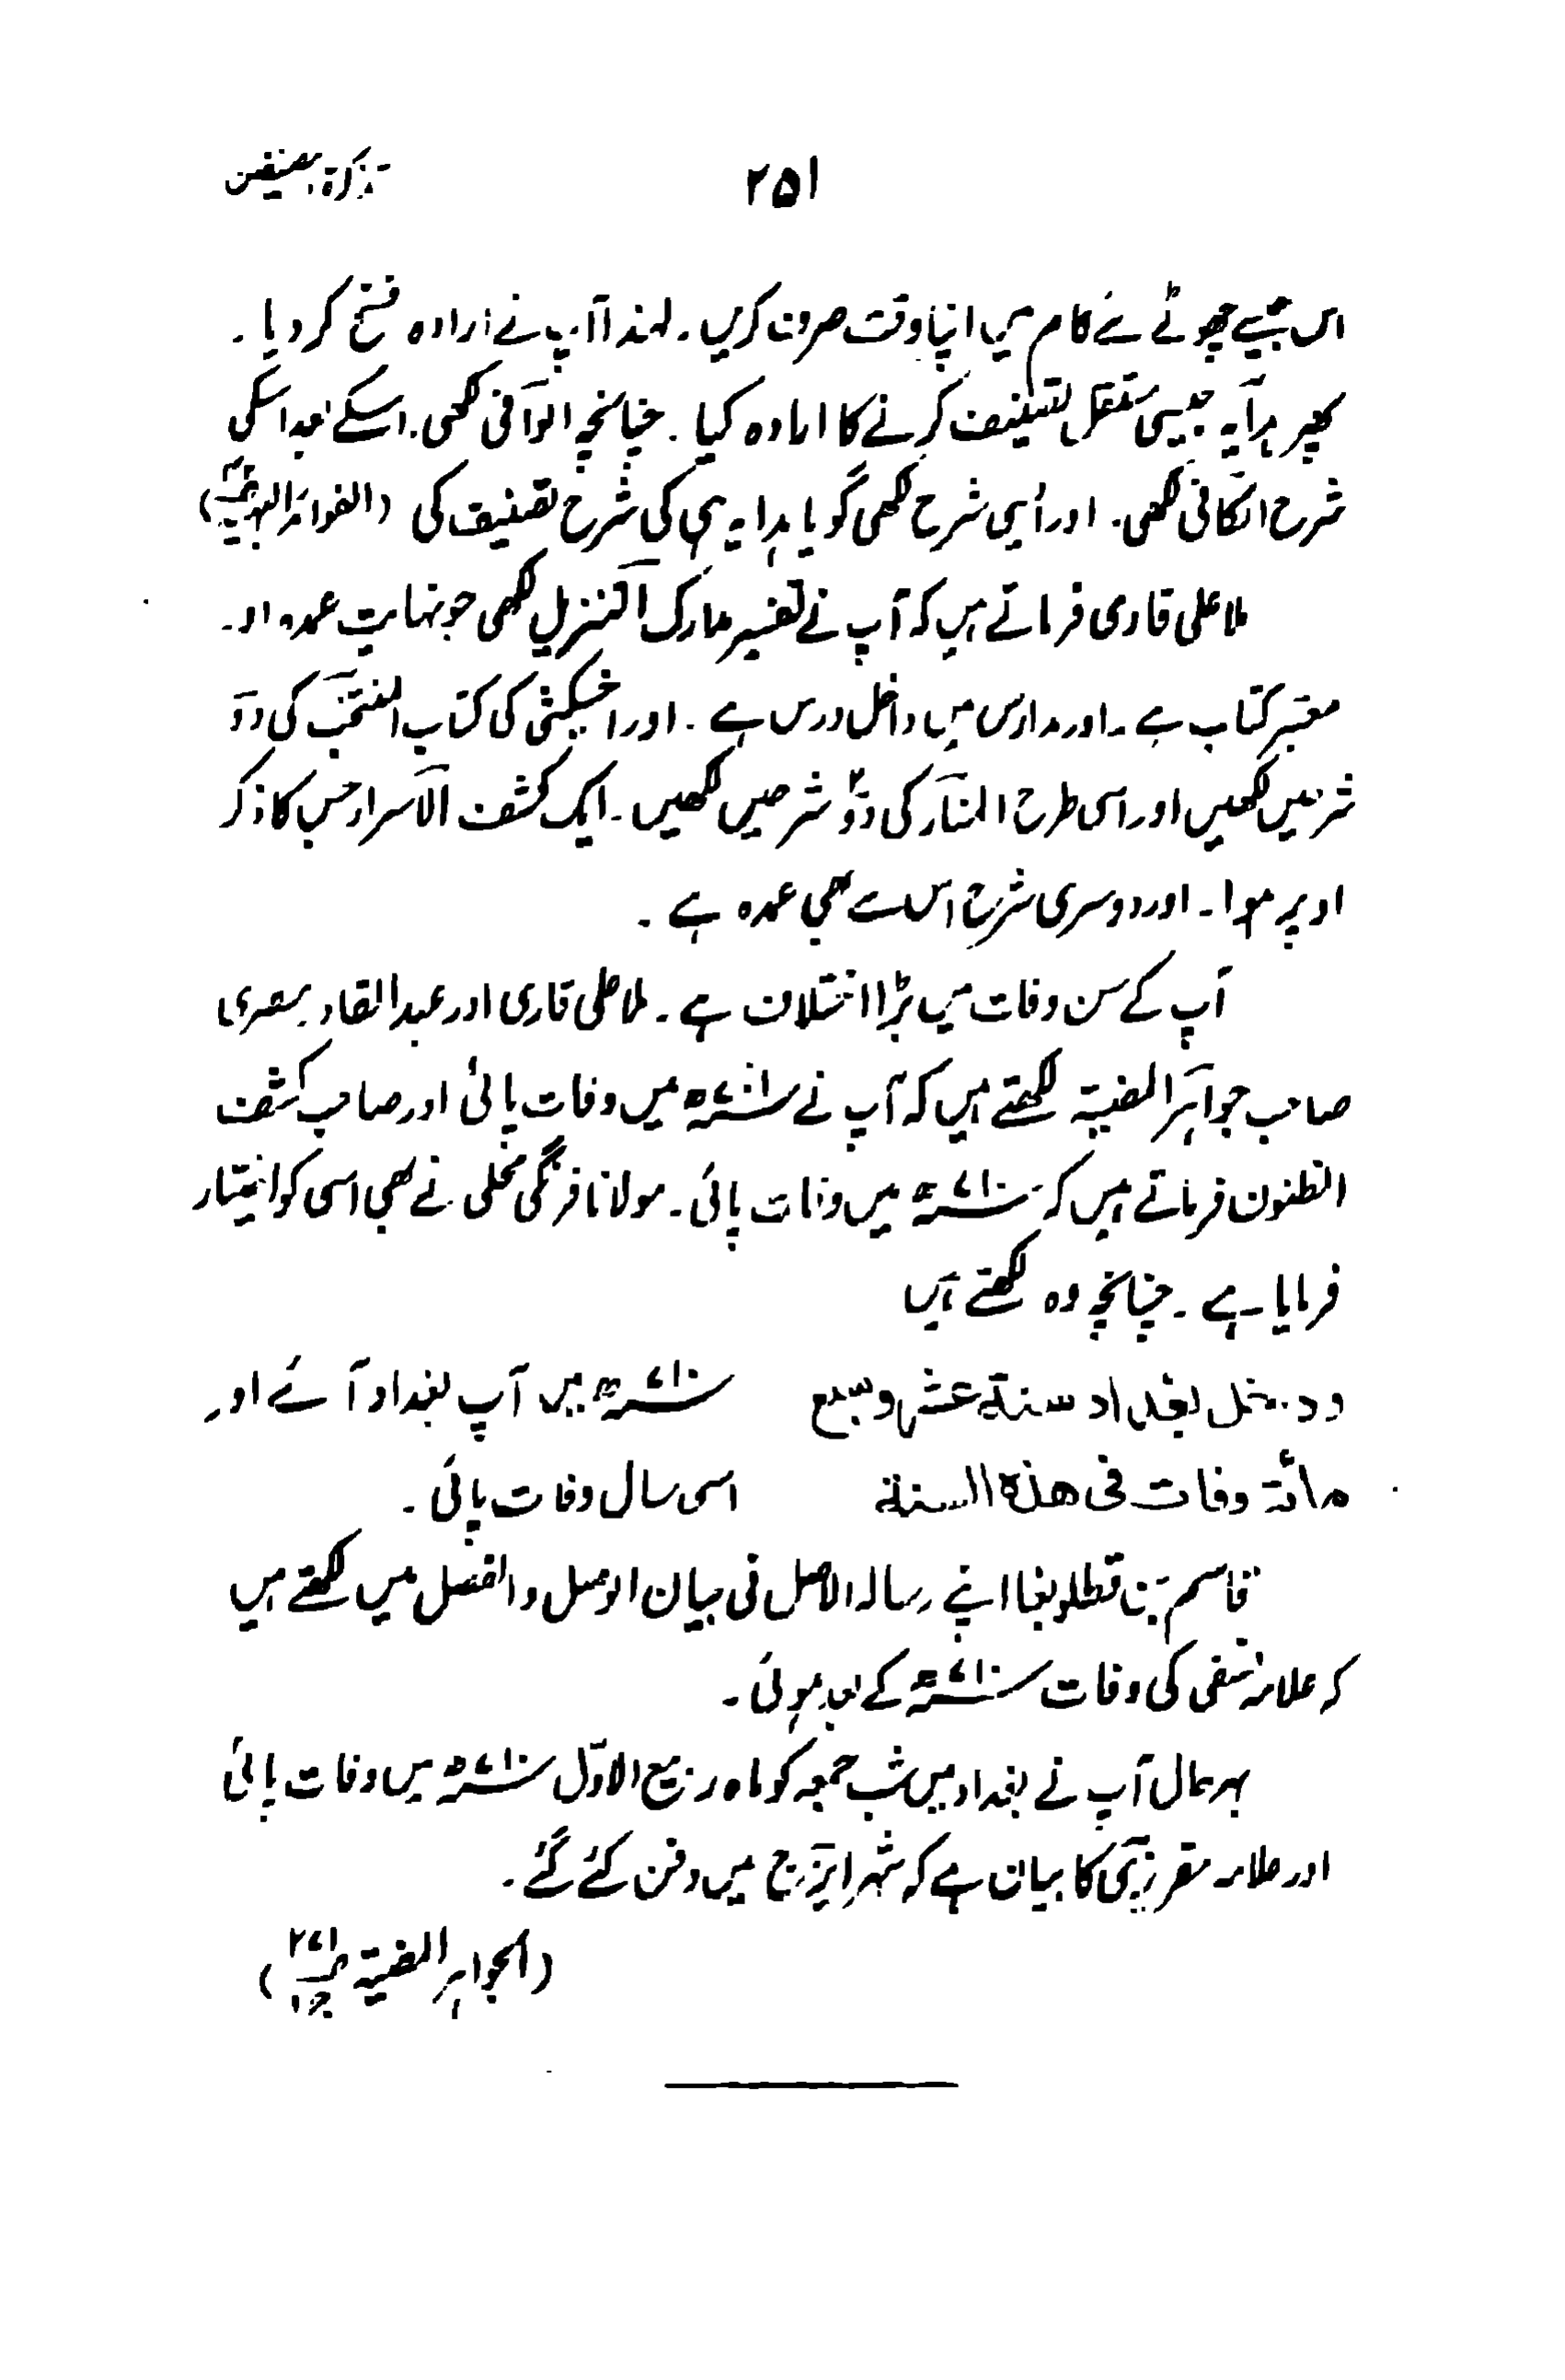 ۲۵۱
تذکرۃ المصنفین
اس جیسے چھوٹے سے کام میں اپنا وقت صرف کریں۔ لہٰذا آپ نے ارادہ فسخ کر دیا۔
پھر ہدایہ جیسی مستقل تصنیف کرنے کا ارادہ کیا۔ چنانچہ الوافی لکھی۔ اسکے بعد اسکی
شرح الکافی لکھی۔ اور ایسی شرح لکھی گویا ہدایہ ہی کی شرح تصنیف کی (الفوائد البہیۃ)
ملا علی قاری فرماتے ہیں کہ آپ نے تفسیر مدارک التنزیل لکھی جو نہایت عمدہ اور
معتبر کتاب ہے۔ اور مدارس میں داخل درس ہے۔ اور اخسیکثی کی کتاب المنتخب کی دو
شرحیں لکھیں اور اسی طرح المنار کی دو ۲ شرحیں لکھیں۔ ایک کشف الاسرار جس کا ذکر
اوپر ہوا۔ اور دوسری شرح اس سے بھی عمدہ ہے۔
آپ کے سن وفات میں بڑا اختلاف ہے۔ ملا علی قاری اور عبدالقادر مصری
صاحب جواہر المضیۃ لکھتے ہیں کہ آپ نے سنہ ۷۰۱ھ میں وفات پائی اور صاحب کشف
الظنون فرماتے ہیں کہ سنہ ۷۱۰ھ میں وفات پائی۔ مولانا فرنگی محلی نے بھی اسی کو اختیار
فرمایا ہے۔ چنانچہ وہ لکھتے ہیں
ودخل بغداد سنة عشر وسبع سنہ ۷۱۰ھ میں آپ بغداد آئے اور
مائة وفات فى هذه السنة اسی سال وفات پائی۔
قاسم بن قطلوبغا اپنے رسالہ الاصل فی بیان الوصل والفصل میں لکھتے ہیں
کہ علامہ نسفی کی وفات سنہ ۷۱۰ھ کے بعد ہوئی۔
بہرحال آپ نے بغداد میں شب جمعہ کو ماہ ربیع الاوّل سنہ ۷۱۰ھ میں وفات پائی
اور علامہ مقرزی کا بیان ہے کہ شہر ایذج میں دفن کئے گئے۔
(الجواہر المضیۃ ص۲۷۱ ج۱)